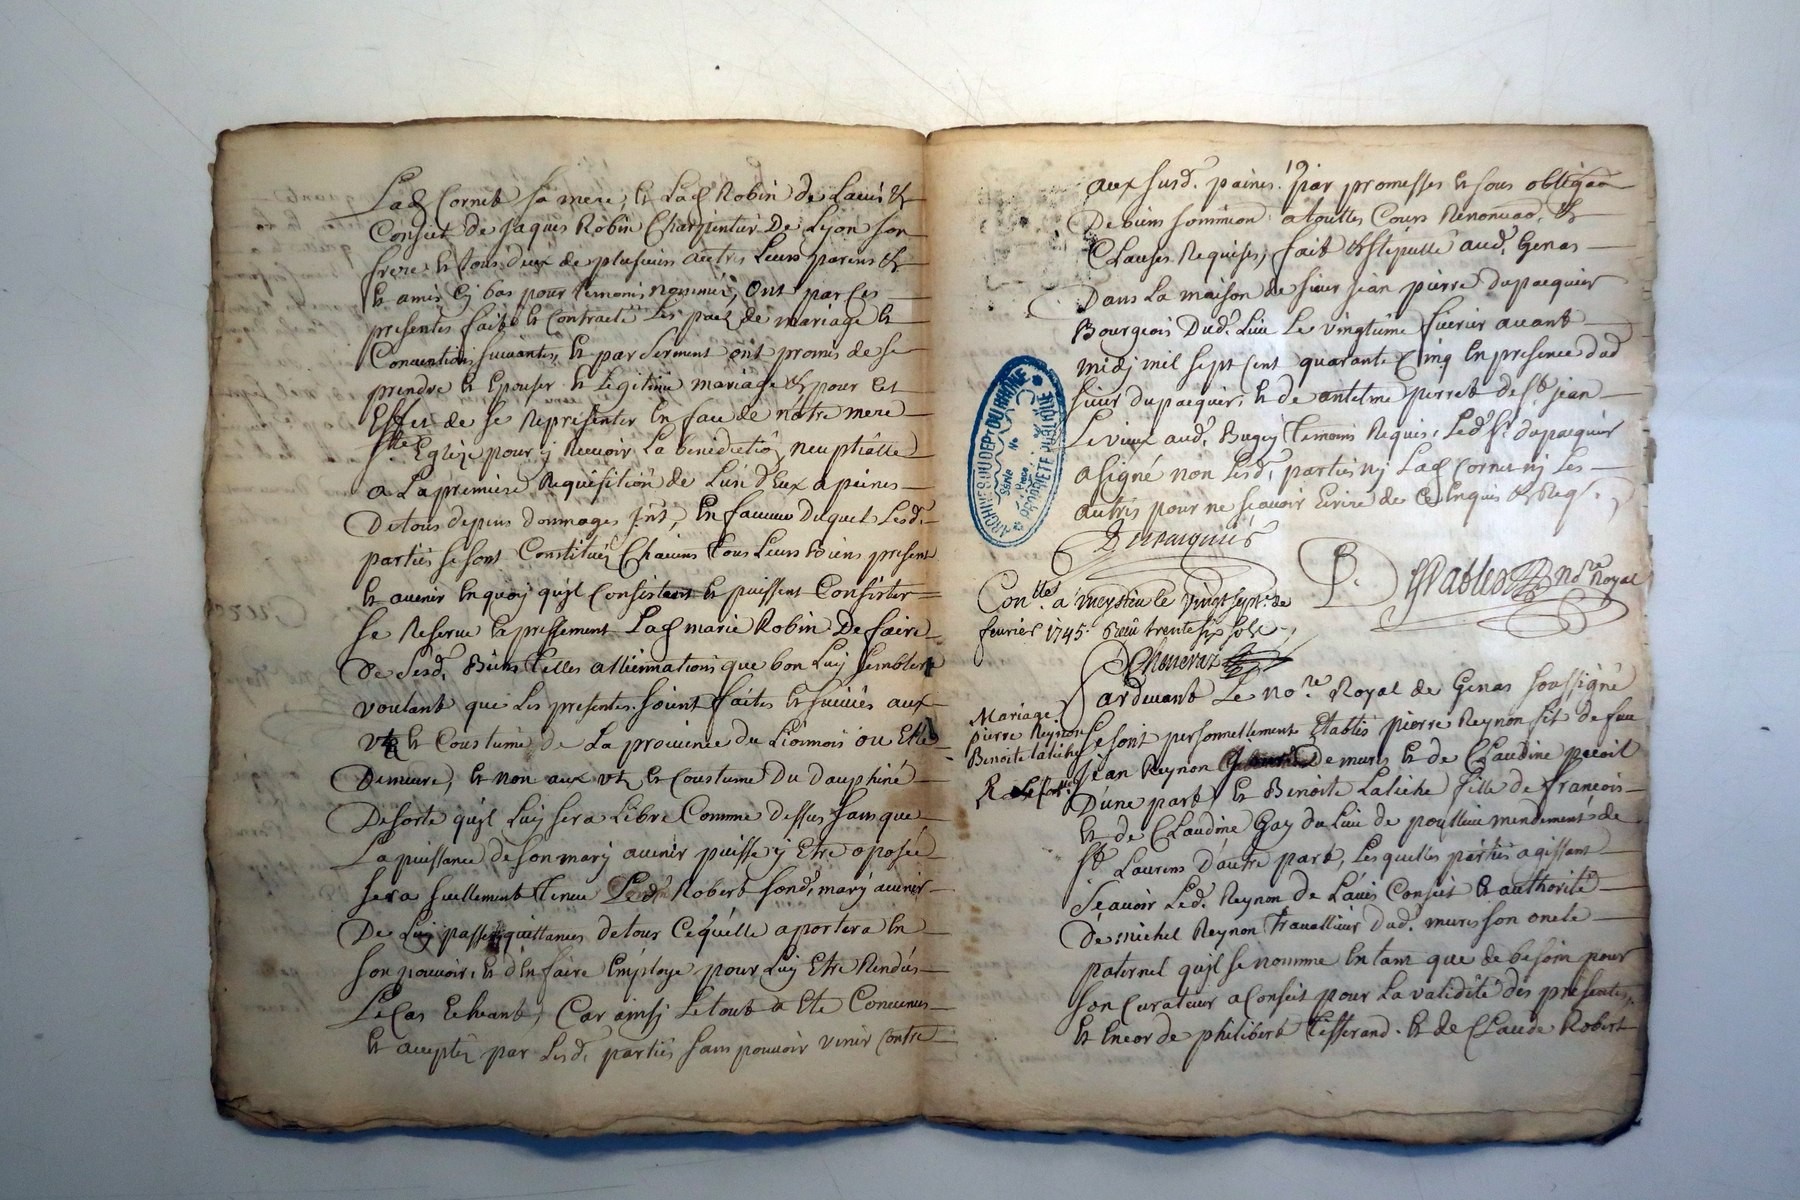 Lad Cornet sa mere, et Lad Robin de L'auis et
Conseil de Jaques Robin Charpentier De Lyon son
frere et tous deux de plusieurs autres Leurs parens et
et amis cy bas pour temoins nommés, ont par ces
presentes fait et Contracté Les pact de mariage et
Conuentions suiuantes, et par serment ont promis de se
prendre et Epouser en Legitime mariage et pour cet
Effet de se Representer En face de nôtre mere
Ste Eglize pour y Receuoir La benedictiõ neuptialle
a La premiere Requisition de L'un d'Eux a peines
De tous depens dommages Jnts, En faueur Duquel Lesd.
parties se sont Constitués Chacuns tous Leurs biens present
et auenir En quoy qu'jl Consistent et puissent Consister
se Reserue Expressement Lad marie Robin De faire
De sesd. Biens telles allienations que bon Luy semblera
voulant que Les presentes soient faites et suiuies aux
vz et Coustume de La prouince du Lionnois ou Elle
Demeure, et non aux vz et Coustume Du dauphiné
De sorte qu'jl Luy sera Libre Comme dessus sans que
La puissance de son mary auenir puisse y Etre oposée
sera seullement tenu Led. Robert sond. mary auenir
De Luy passer quittances de tous Ce qu'elle aportera En
son pouuoir, et d'En faire Employe pour Luy Etre Rendus
Le Cas Echeant, Car ainsj Le tout a Eté Conuenus
et acceptés par Lesd. parties sans pouuoir venir Contre
19
aux susd. peines. par promesses et sous obligaõn
De biens sommion a touttes Cours Renonciaõ. et
Clauses Requises, fait et stipullé aud. Genas
Dans La maison de sieur jean pierre dupacquier
Bourgeois Dud. Lieu Le vingtième feurier auant
midj mil sept cent quarante Cinq En presence dud
sieur dupacquier, et de antelme perret de St jean
Le vieux aud. Bugey temoins Requis. Led. Sr. dupacquier
a signé non Lesd. parties nj Lad Cornet nj Les
autres pour ne sçauoir Ecrire de Ce Enquis et Reqs.
Dupacquier
no.re Royal
Conllé. a meyzieu le vingt sept.e de
feurier 1745. Receu trente six sols
Mariage
pierre Reynon
Benoite Laliche
Pardeuant Le no.re Royal de Genas soussigné
se sont personnellement Etablis pierre Reynon fils de feu
jean Reynon De mures et de Claudine
D'une part et Benoite Laliche fille de francois
et de Claudine Gay du Lieu de poullieu mendement de
St Laurens D'autre part, Lesquelles parties agissant
Scauoir Led. Reynon de L'auis Conseil et authorité
De michel Reynon trauallieur dud. mures son oncle
paternel qu'jl se nomme En tant que de besoin pour
son Curateur a Conseil pour La validité des presentes,
et Encor de philibert tisserand. et de Claude Robert
ARCHIVES DU DEPT DU RHONE
Série
No
PROPRIETE PUBLIQUE